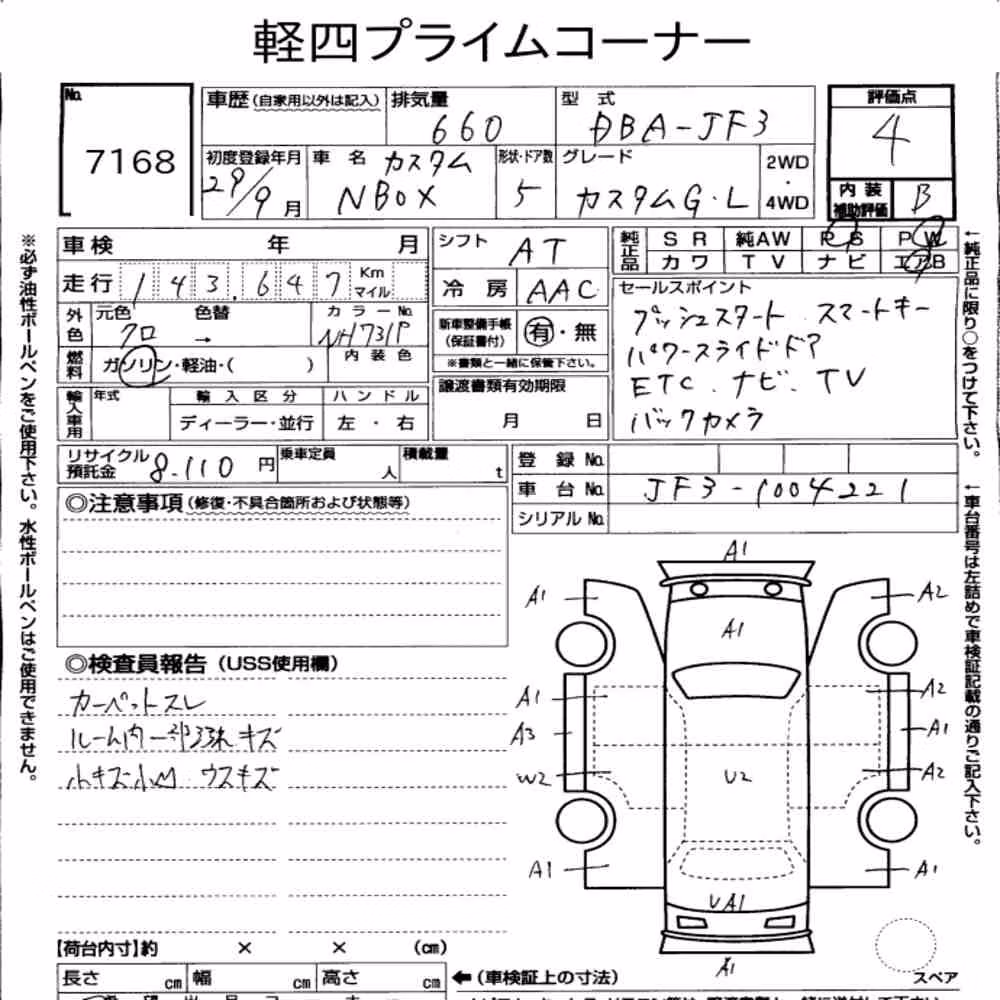 軽四プライムコーナー
No. 7168
車歴(自家用以外は記入) 排気量 660 型式 DBA-JF3
評価点 4
初度登録年月 29/9月 車名 カスタム NBOX 形状・ドア数 5 グレード カスタムG・L 2WD・4WD
内装補助評価 B
車検 年 月
走行 143.647 Km マイル
外色 元色 クロ 色替 → カラーNo. NH731P
燃料 ガソリン・軽油・( ) 内装色
輸入車用 年式 輸入区分 ディーラー・並行 ハンドル 左・右
シフト AT
冷房 AAC
新車整備手帳(保証書付) 有・無
※書類と一緒に保管下さい。
譲渡書類有効期限
月 日
純正品 SR 純AW PS PW
カワ TV ナビ エアB
セールスポイント
プッシュスタート スマートキー
パワースライドドア
ETC. ナビ. TV
バックカメラ
リサイクル預託金 8.110円 乗車定員 人 積載量 t
登録No.
車台No. JF3-1004221
シリアルNo.
◎注意事項(修復・不具合箇所および状態等)
◎検査員報告(USS使用欄)
カーペットスレ
ルーム内一部
小キズ小凹 ウスキズ
A1
A1 A2
A1
A1 A2
A3 A1
W2 U2 A2
A1 A1
UA1
A1
スペア
【荷台内寸】約 × × (cm)
長さ cm 幅 cm 高さ cm ←(車検証上の寸法)
※必ず油性ボールペンをご使用下さい。水性ボールペンはご使用できません。
←純正品に限り○をつけて下さい。
←車台番号は左詰めで車検証記載の通りご記入下さい。